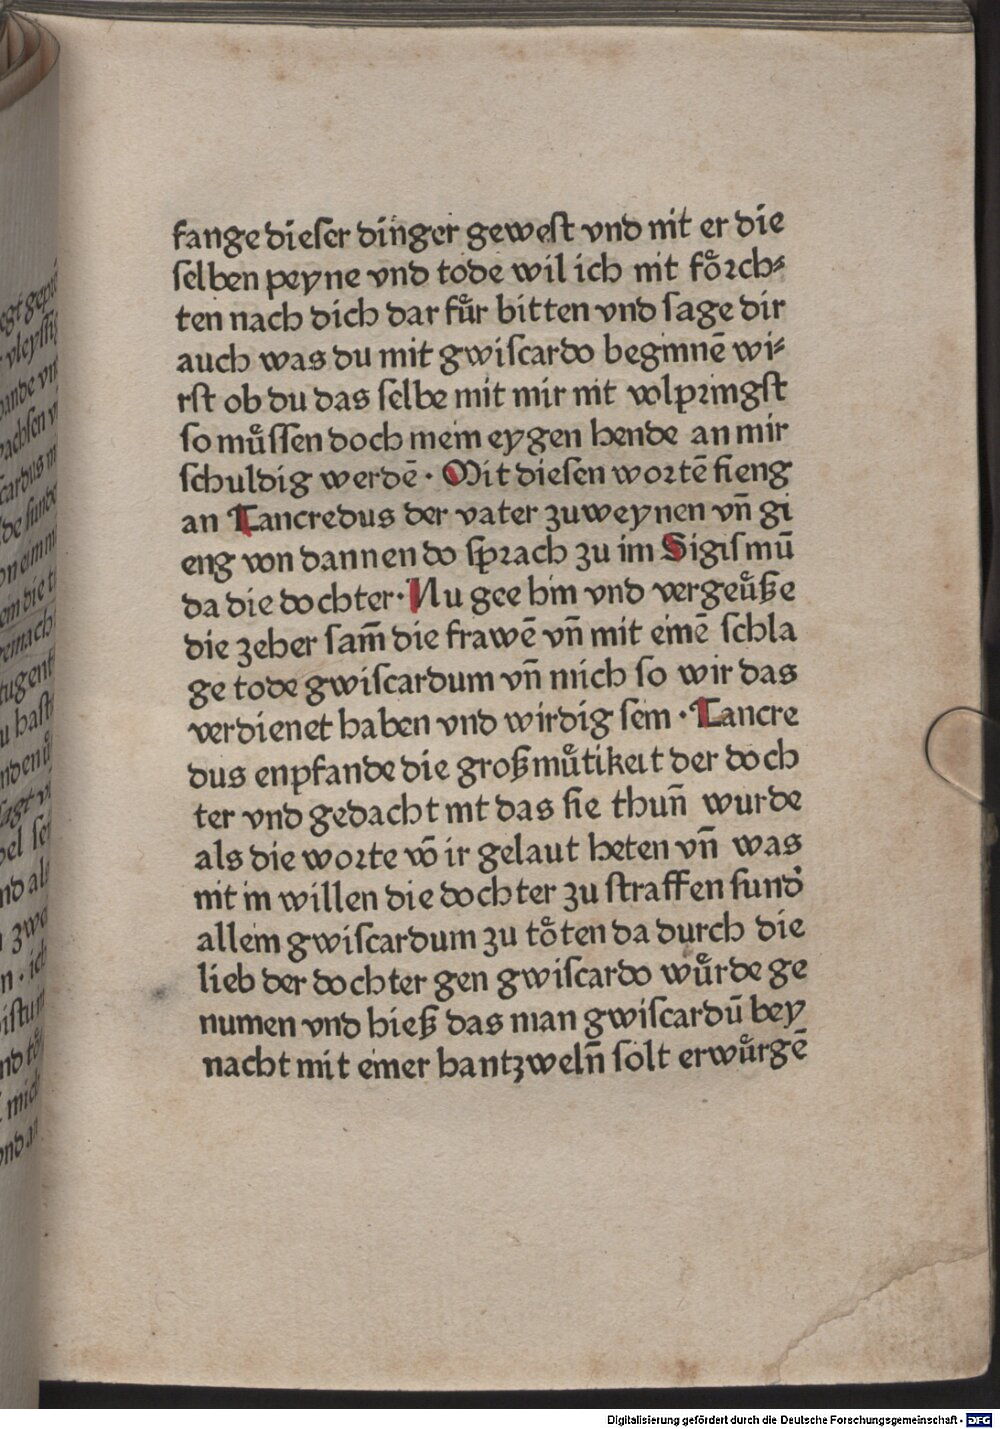 fange dieſer dinger geweſt vnd nit er die
ſelben peyne vnd tode wil ich nit foͤrch⸗
ten nach dich dar fuͤr bitten vnd ſage dir
auch was du mit gwiſcardo beginnē wi⸗
rſt ob du das ſelbe mit mir nit volpringſt
ſo muͤſſen doch mein eygen hende an mir
ſchuldig werdē · Mit dieſen wortē fieng
an Tancredus der vater zuweynen vn̄ gi
eng von dannen do ſprach zu im Sigiſmū
da die dochter · Nu gee hin vnd vergeuͤße
die zeher ſam̄ die frawē vn̄ mit einē ſchla
ge tode gwiſcardum vn̄ mich ſo wir das
verdienet haben vnd wirdig ſein · Tancre
dus enpfande die großmuͤtikeit der doch
ter vnd gedacht nit das ſie thun̄ wurde
als die worte vō ir gelaut heten vn̄ was
nit in willen die dochter zu ſtraffen ſund̓
allein gwiſcardum zu toͤten da durch die
lieb der dochter gen gwiſcardo wuͤrde ge
numen vnd hieß das man gwiſcardū bey
nacht mit einer hantzweln̄ ſolt erwuͤrgē
Digitalisierung gefördert durch die Deutsche Forschungsgemeinschaft - DFG